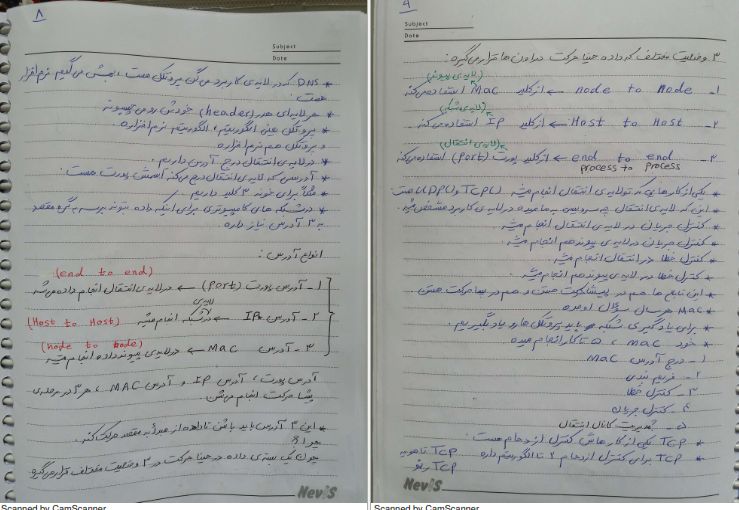 ۸
Subject
Date
* DNS که در لایه‌ی کاربرد می‌گن پروتکل هست، بهش می‌گیم نرم افزار
هست.
* هر لایه‌ای هدر (header) خودش رو می‌چسبونه
* پروتکل عین الگوریتم، الگوریتم نرم افزاره
و پروتکل هم نرم افزاره
* در لایه‌ی انتقال درج آدرس داریم.
* آدرسی که لایه‌ی انتقال درج می‌کنه اسمش پورت هست.
* مثلاً برای خونه ۳ کلید داریم.
* در شبکه های کامپیوتری برای اینکه داده بتونه برسه به گره مقصد
به ۳ آدرس نیاز داره.
انواع آدرس:
(end to end)
۱- آدرس پورت (Port) ← در لایه‌ی انتقال انجام داده می‌شه
(Host to Host)
۲- آدرس IP ← در لایه‌ی شبکه انجام میشه
(node to node)
۳- آدرس MAC ← در لایه‌ی پیوند داده انجام میشه
آدرس پورت، آدرس IP و آدرس MAC، هر ۳ در
حرکت انجام می‌شن.
* این ۳ آدرس باید باشن تا داده از مبدأ به مقصد حرکت کند.
چرا؟
چون یک بسته‌ی داده در حین حرکت در ۳ وضعیت مختلف قرار می‌گیره
Nevis
Scanned by CamScanner
۹
Subject
Date
۳ وضعیت مختلف که داده حین حرکت در اون ها قرار می‌گیره:
(لایه‌ی پیوند)
۱- node to node ← از کلید MAC استفاده می‌کنه
(لایه‌ی شبکه)
۲- Host to Host ← از کلید IP استفاده می‌کنه
(لایه‌ی انتقال)
۳- end to end ← از کلید پورت (Port) استفاده می‌کنه
process to process
* یکی از کارهایی که تو لایه‌ی انتقال انجام میشه (TCP و UDP) هست
* این که لایه‌ی انتقال چه سرویسی به ما میده در لایه‌ی کاربرد مشخص میشه.
* کنترل جریان در لایه‌ی انتقال انجام میشه.
* کنترل جریان در لایه‌ی پیوند هم انجام میشه.
* کنترل خطا در انتقال انجام میشه.
* کنترل خطا در لایه‌ی پیوند هم انجام میشه.
* این تابع ها هم در حرکت هستن و هم در حرکت هستن
* MAC هر سال سؤال اومده
* برای یادگیری شبکه هم باید پروتکل ها رو یاد بگیریم.
* خود MAC، ۵ تا کار انجام میده
۱- درج آدرس MAC
۲- فریم بندی
۳- کنترل خطا
۴- کنترل جریان
۵- مدیریت کانال انتقال
* TCP یکی از کارهاش کنترل ازدحام هست.
* TCP برای کنترل ازدحام ۲ تا الگوریتم داره TCP تاهو
TCP رنو
Nevis
Scanned by CamScanner